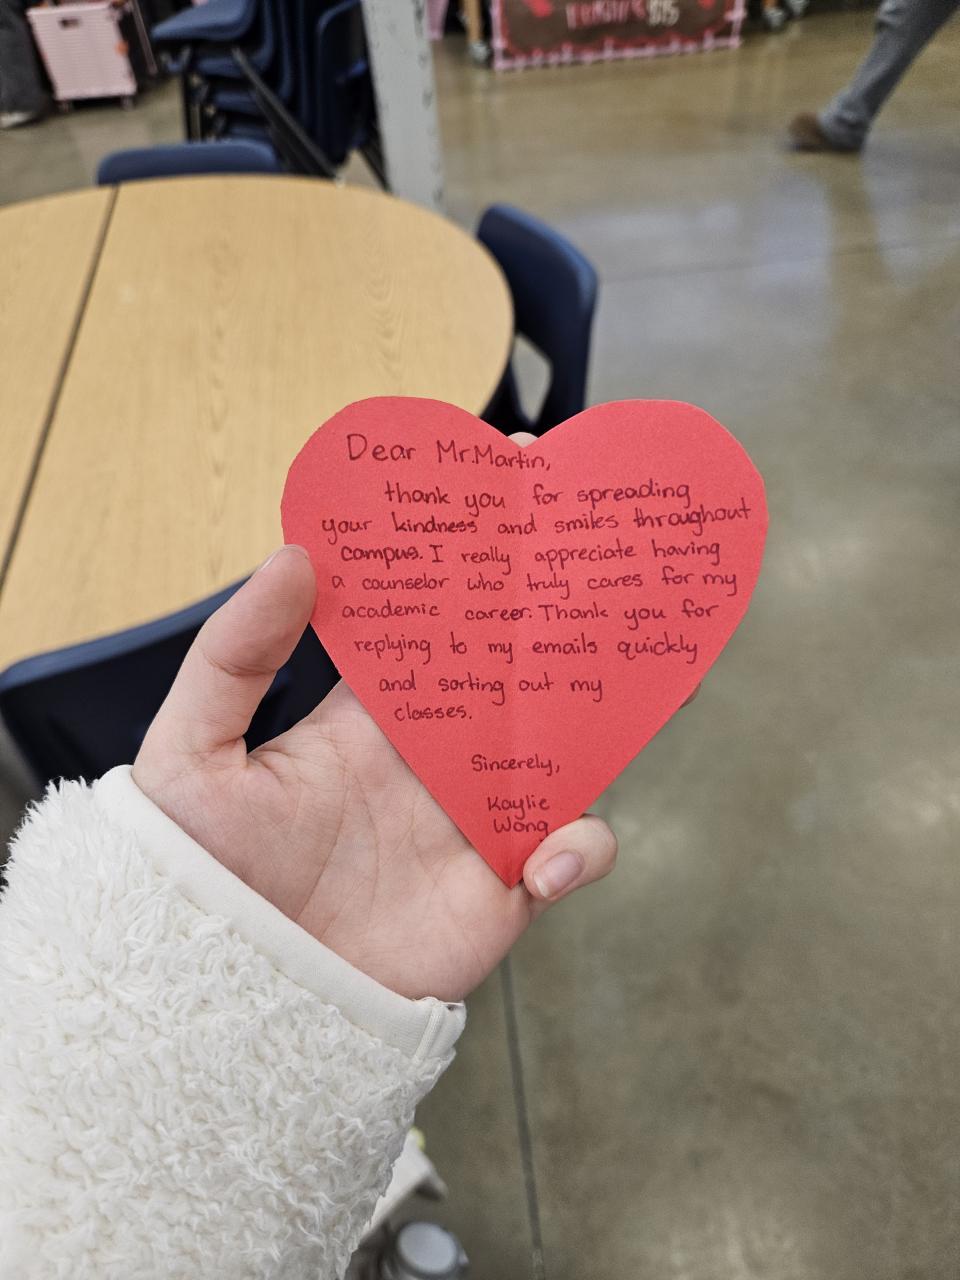 $15
Dear Mr.Martin,
thank you for spreading
your kindness and smiles throughout
campus. I really appreciate having
a counselor who truly cares for my
academic career. Thank you for
replying to my emails quickly
and sorting out my
classes.
Sincerely,
Kaylie
Wong